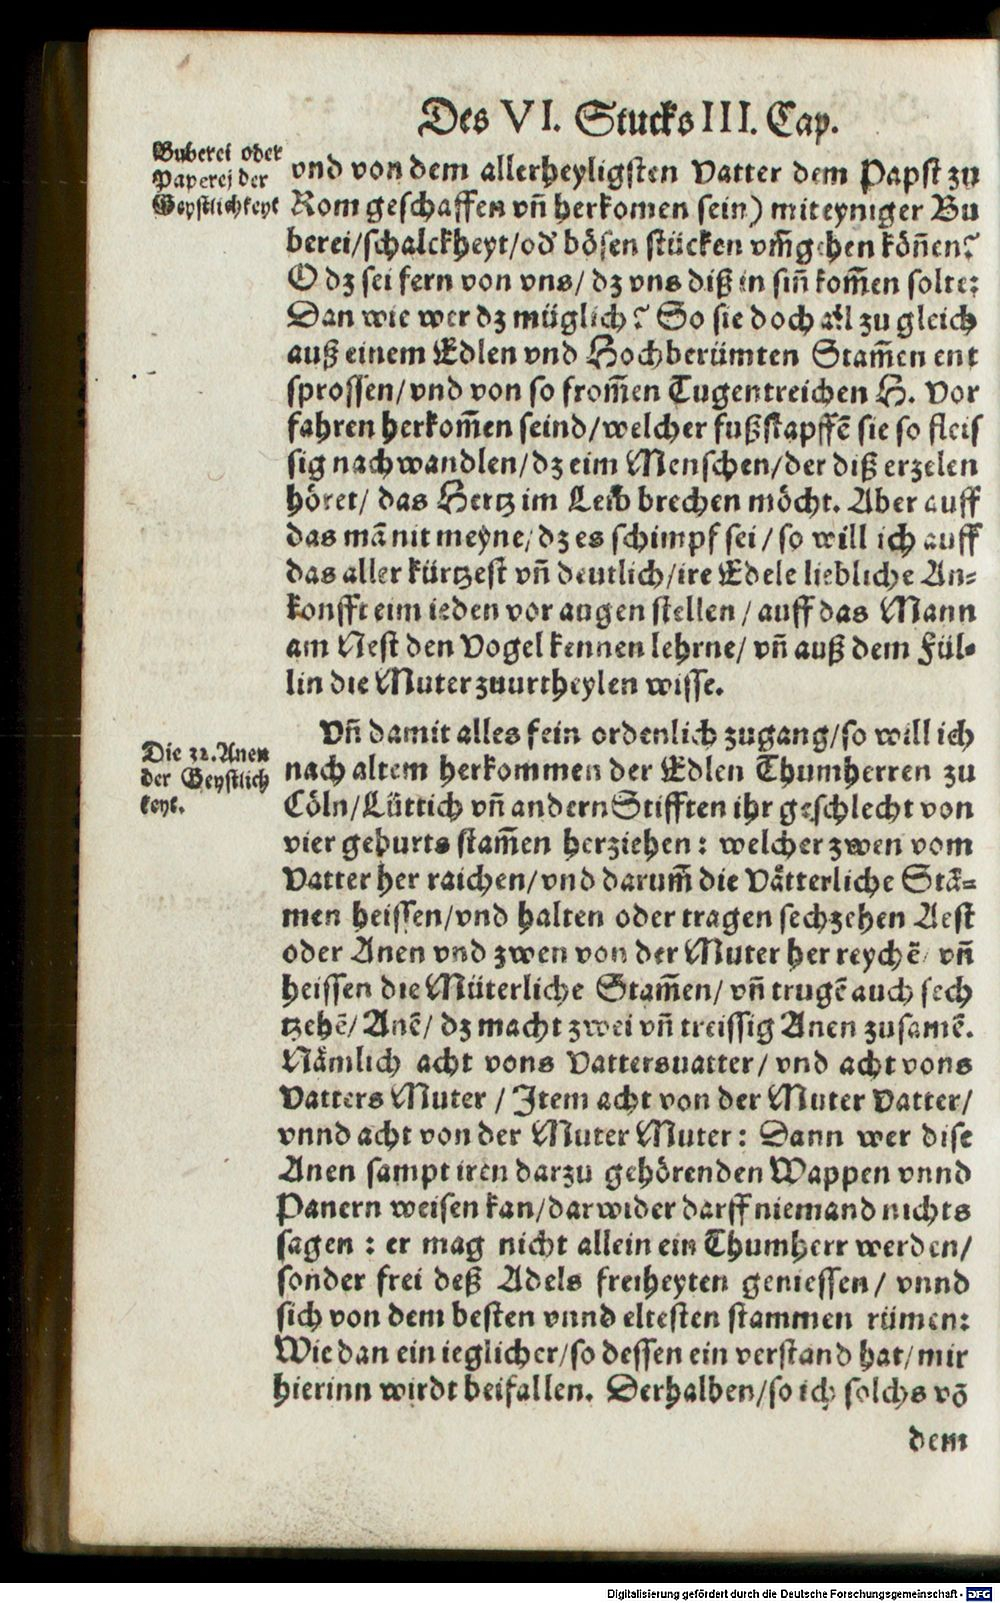 Des VI. Stucks III. Cap.
Buberei oder
Paperej der
Geystlichkeyt
vnd von dem allerheyligsten Vatter dem Papst zu
Rom geschaffen vñ herkomen sein) mit eyniger Bu
berei/schalckheyt/od' bösen stücken vm̃gehen köñen?
O dz sei fern von vns/ dz vns diß in siñ kom̃en solte:
Dan wie wer dz müglich? So sie doch all zu gleich
auß einem Edlen vnd Hochberümten Stam̃en ent
sprossen/vnd von so from̃en Tugentreichen H. Vor
fahren herkom̃en seind/welcher fußstapffẽ sie so fleis
sig nachwandlen/dz eim Menschen/der diß erzelen
höret/ das Hertz im Leib brechen möcht. Aber auff
das mã nit meyne/dz es schimpf sei/ so will ich auff
das aller kürtzest vñ deutlich/ire Edele liebliche An-
konfft eim ieden vor augen stellen/ auff das Mann
am Nest den Vogel kennen lehrne/ vñ auß dem Fül-
lin die Muter zuurtheylen wisse.
Die 32. Anen
der Geystlich
keyt.
Vñ damit alles fein ordenlich zugang/so will ich
nach altem herkommen der Edlen Thumherren zu
Cöln/Lüttich vñ andern Stifften ihr geschlecht von
vier geburts stam̃en herziehen: welcher zwen vom
Vatter her raichen/vnd darum̃ die Vätterliche Stã-
men heissen/vnd halten oder tragen sechzehen Aest
oder Anen vnd zwen von der Muter her reychẽ/ vñ
heissen die Müterliche Stam̃en/ vñ trugẽ auch sech
tzehẽ/ Anẽ/ dz macht zwei vñ treissig Anen zusamẽ.
Nämlich acht vons Vattersuatter/ vnd acht vons
Vatters Muter / Item acht von der Muter Vatter/
vnnd acht von der Muter Muter: Dann wer dise
Anen sampt iren darzu gehörenden Wappen vnnd
Panern weisen kan/darwider darff niemand nichts
sagen : er mag nicht allein ein Thumherr werden/
sonder frei deß Adels freiheyten geniessen/ vnnd
sich von dem besten vnnd eltesten stammen rümen:
Wie dan ein ieglicher/so dessen ein verstand hat/mir
hierinn wirdt beifallen. Derhalben/so ich solchs võ
dem
Digitalisierung gefördert durch die Deutsche Forschungsgemeinschaft - DFG